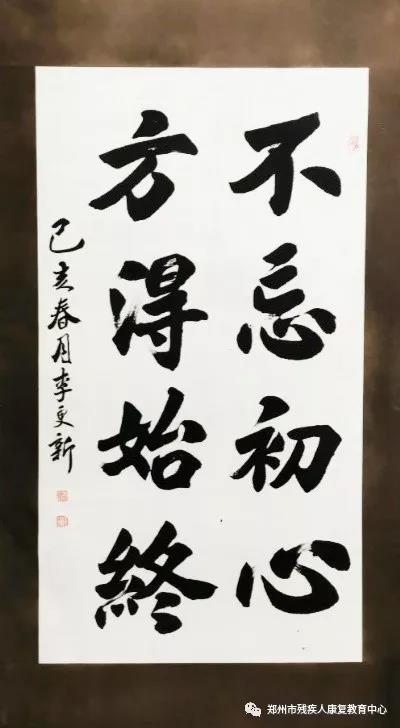 不忘初心
方得始終
己亥春月李更新
郑州市残疾人康复教育中心